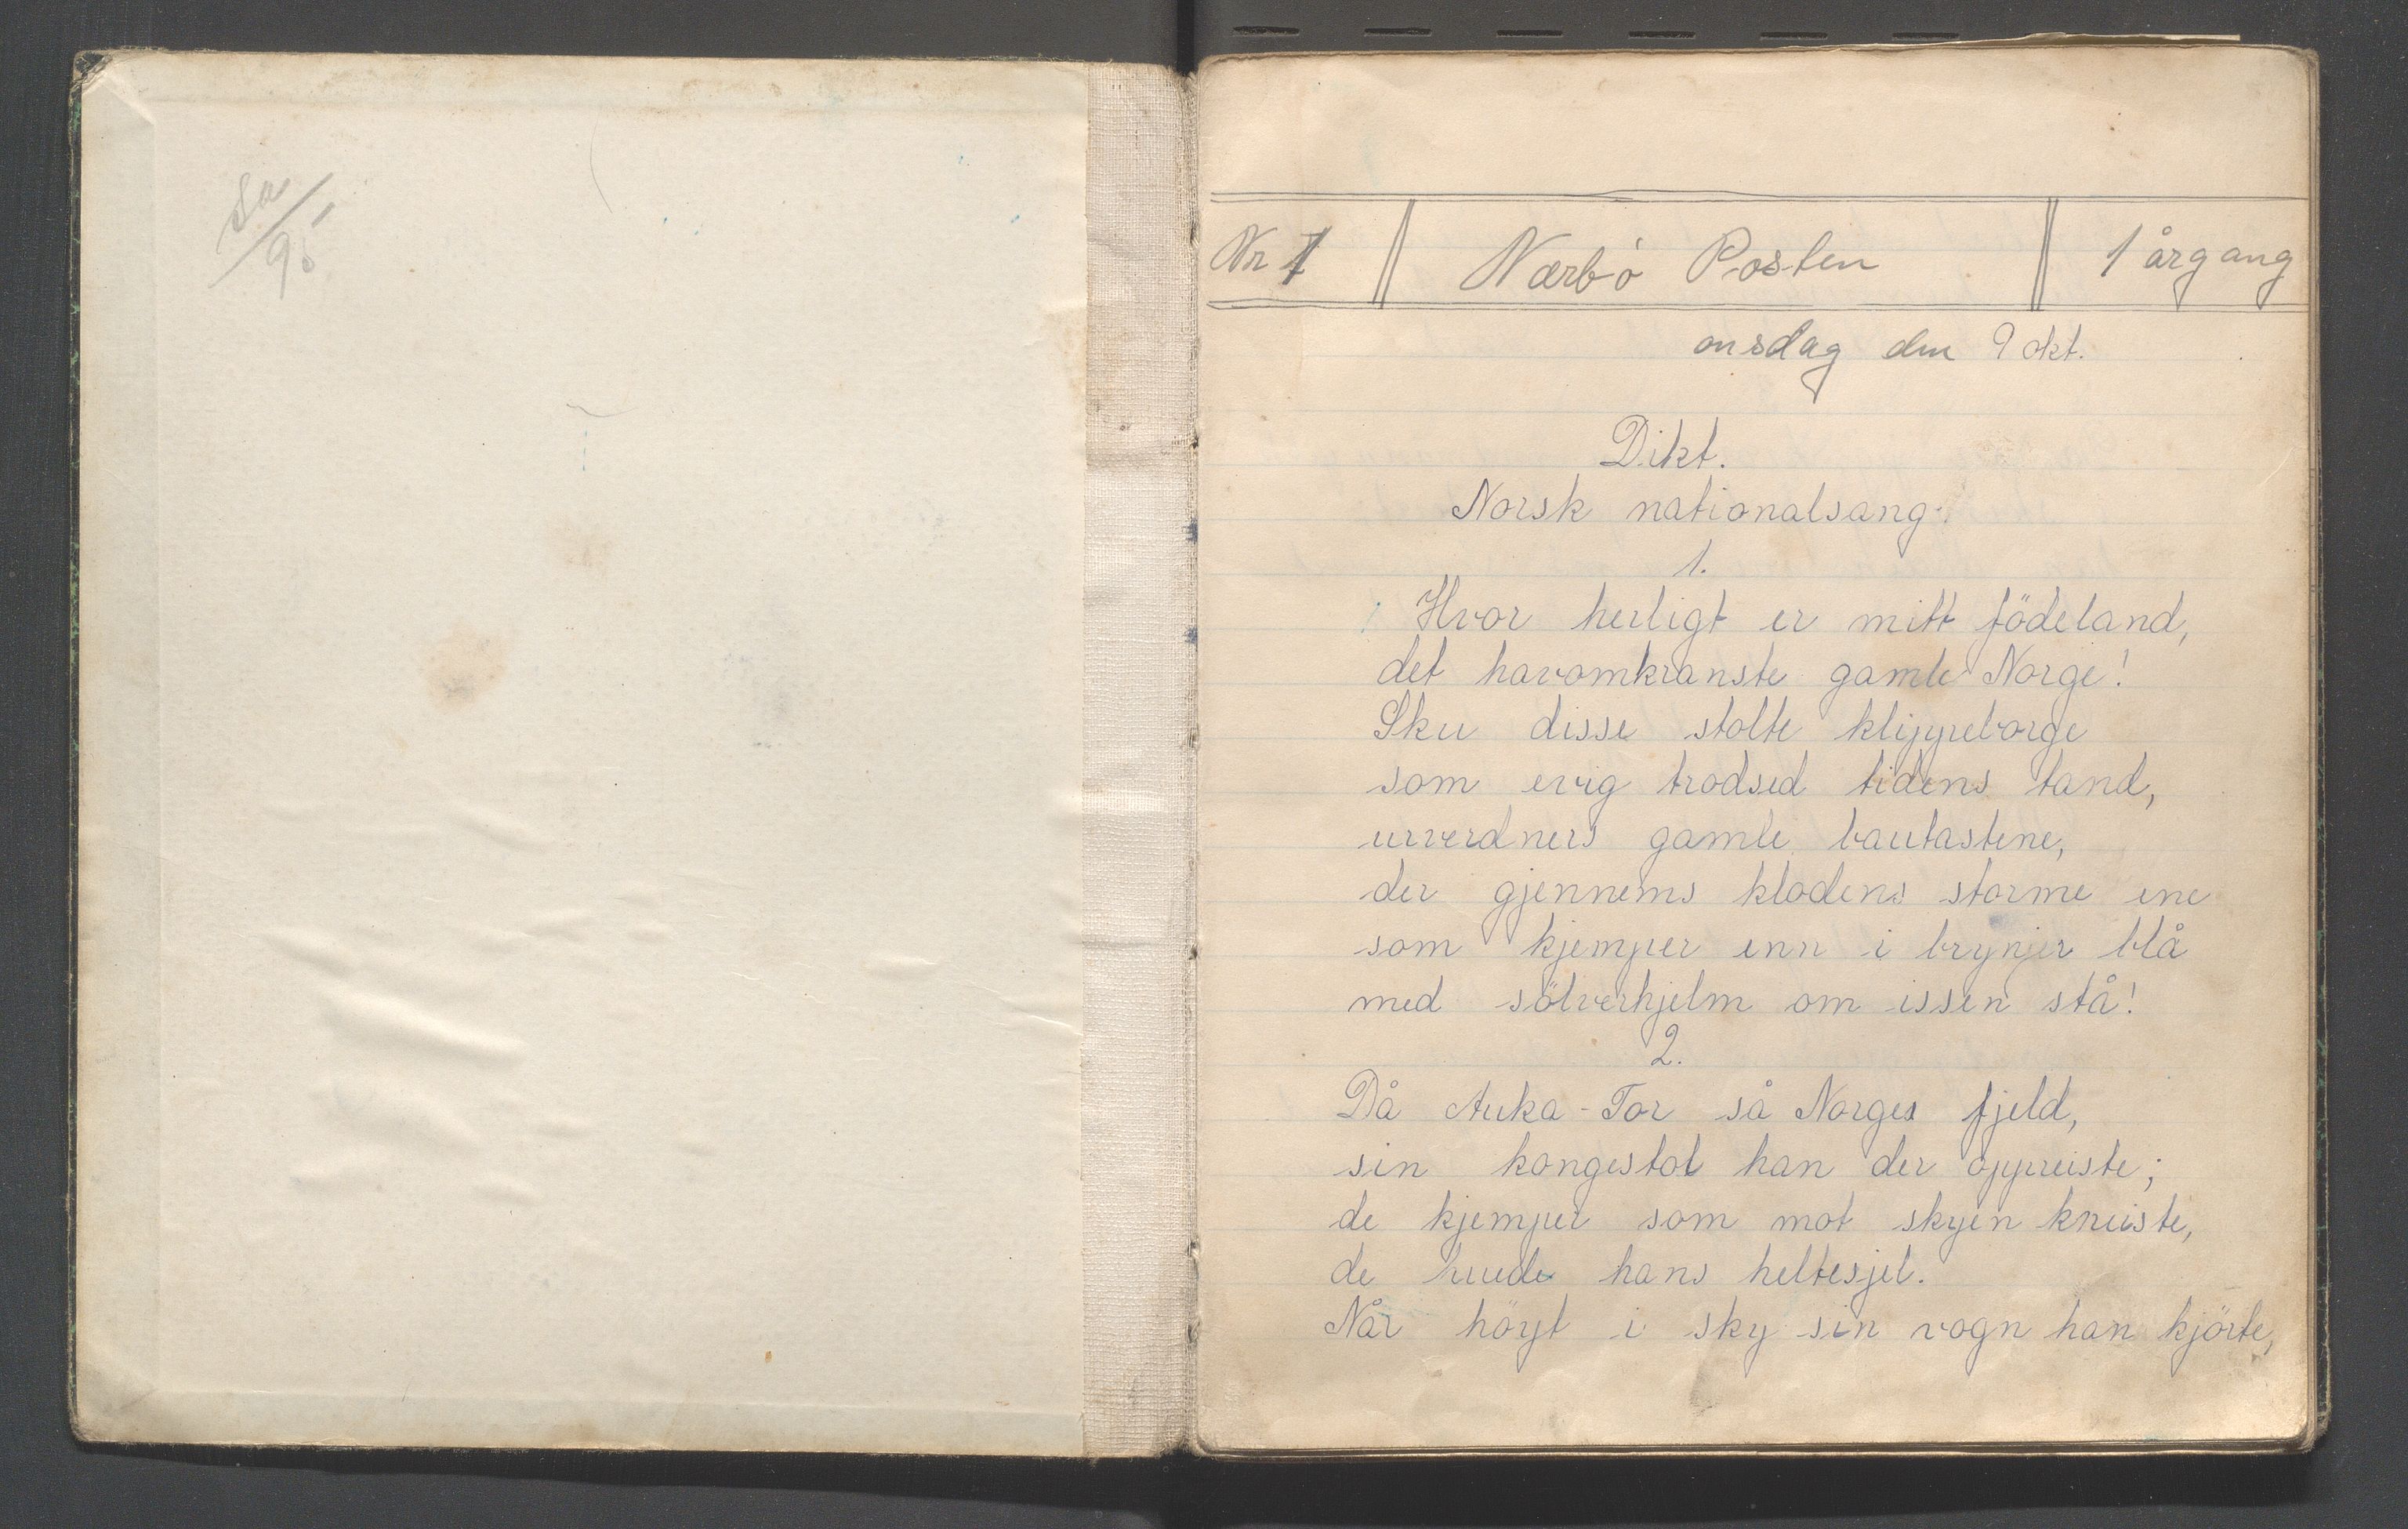 Sa
95
Nr 1 Nærbö Posten 1 årgang
onsdag den 9 okt.
Dikt.
Norsk nationalsang.
1.
Hvor herligt er mitt födeland,
det havomkranste gamle Norge!
Sku disse stolte klippeborge
som evig trodsed tidens tand,
urverdners gamle bautastene,
der gjennems klodens storme ene
som kjemper enn i brynjer blå
med sölverhjelm om issen stå!
2.
Då Auka-Tor så Norges fjeld,
sin kongestol han der oppreiste;
de kjemper som mot skyen kneiste,
de huede hans heltesjel.
Når höyt i sky sin vogn han kjörte,